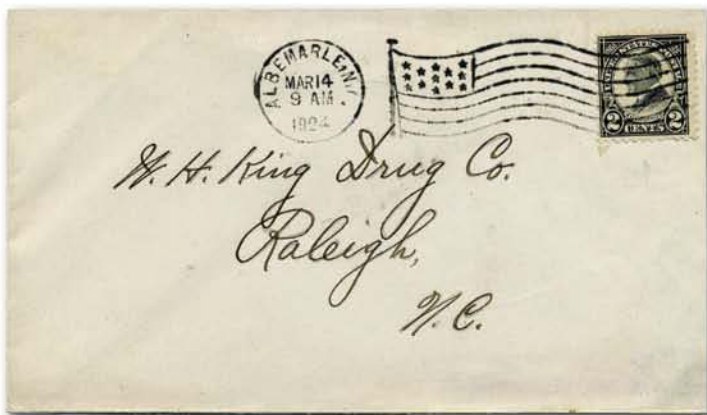 ALBEMARLE, N.C.
MAR 14
9 AM
1924
UNITED STATES POSTAGE
2 CENTS 2
W. H. King Drug Co.
Raleigh,
N. C.